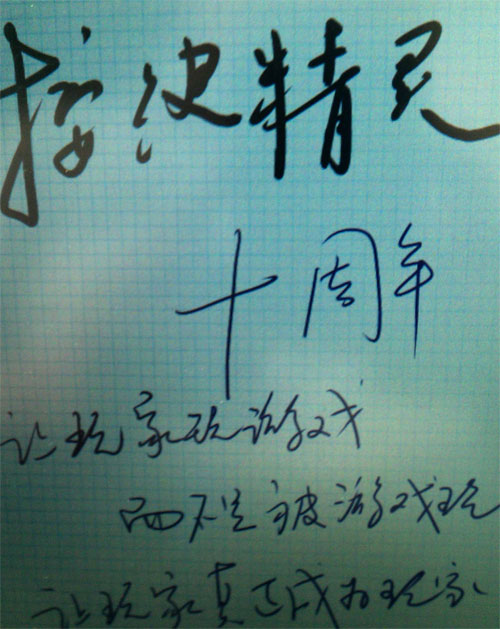 按键精灵
十周年
让玩家玩游戏
而不是被游戏玩
让玩家真正成为玩家